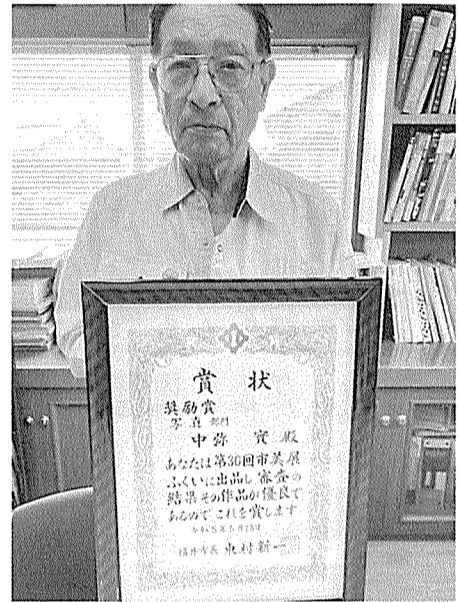 賞状
奨励賞
写真 部門
中弥 實 殿
あなたは第36回市美展
ふくいに出品し審査の
結果その作品が優良で
あるのでこれを賞します
福井市長 東村新一